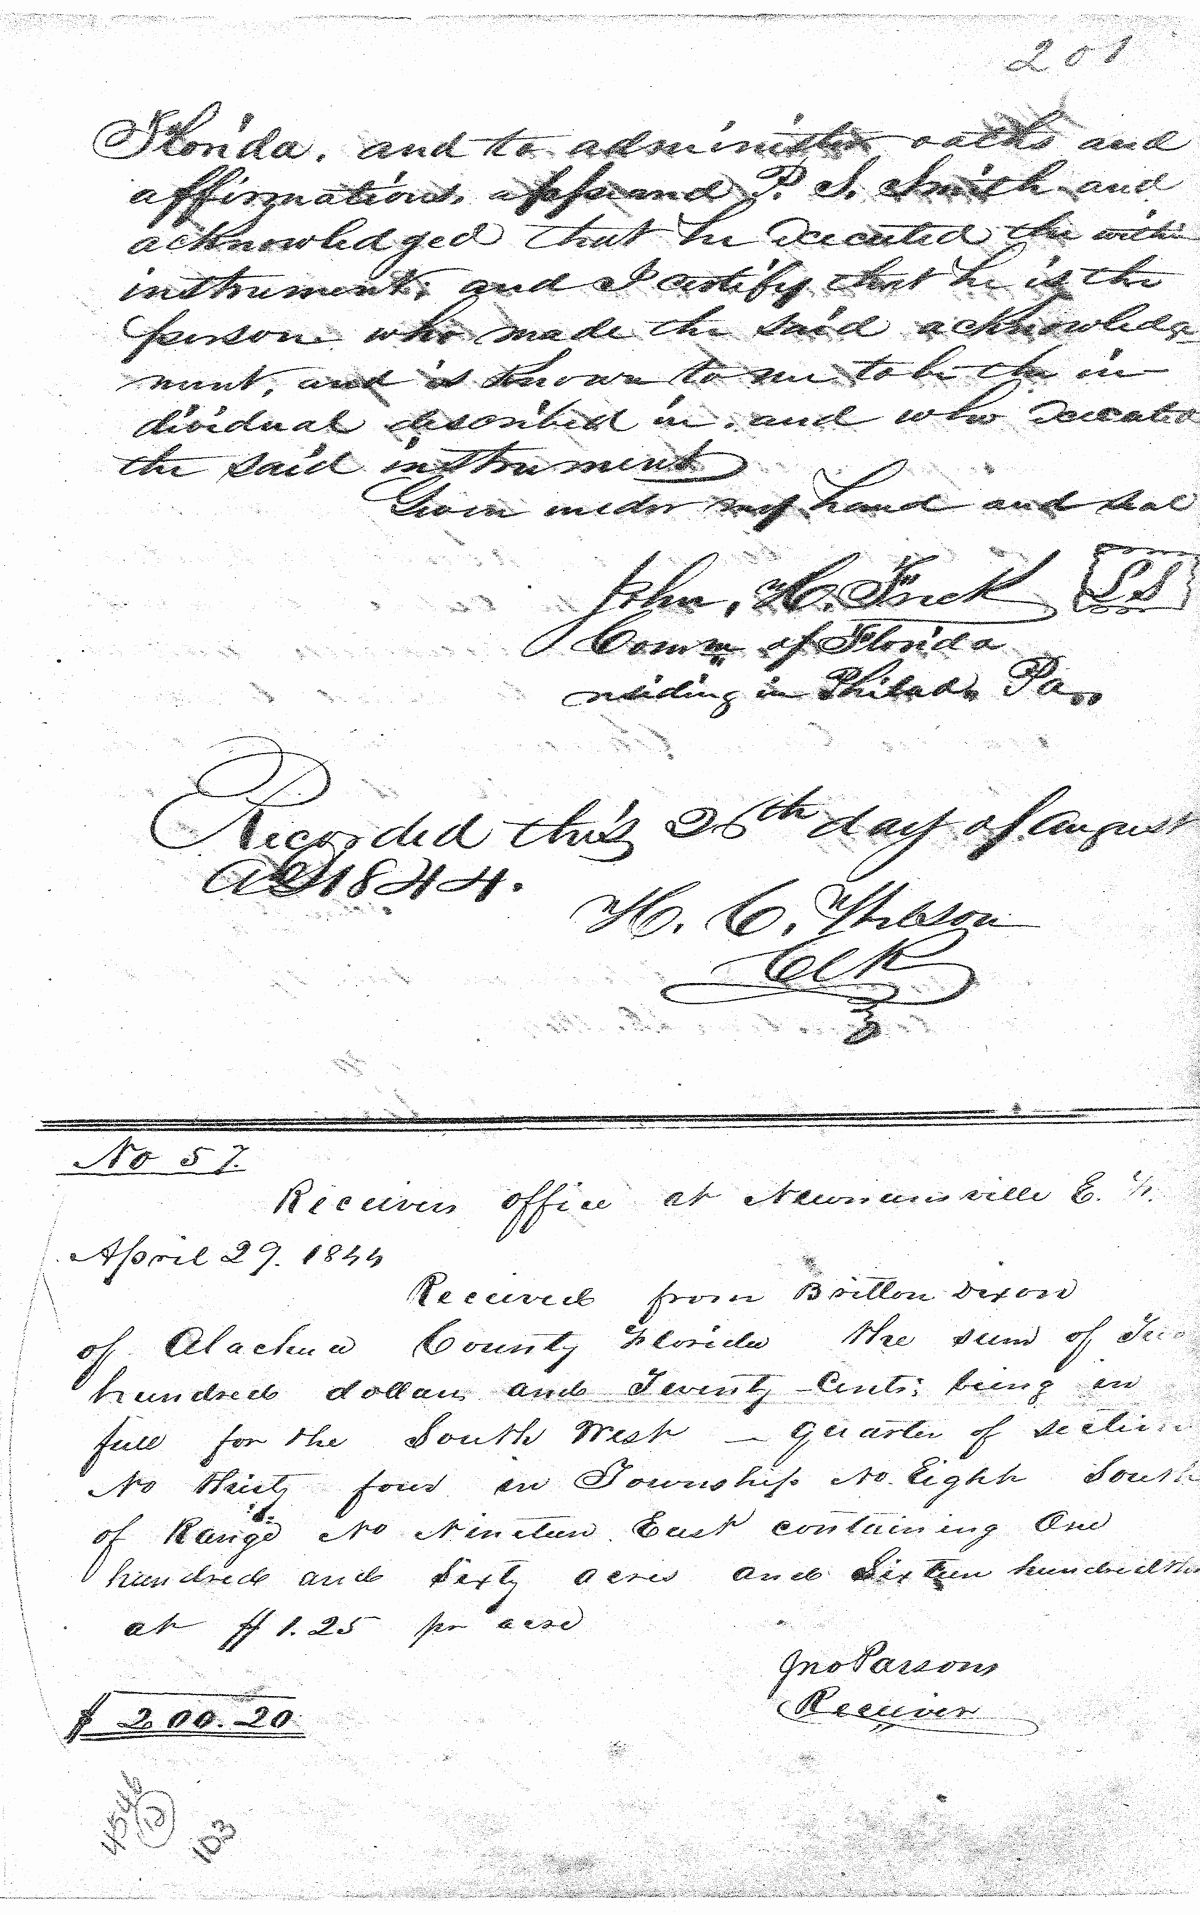 201
Florida. and to administer oaths and
affirmations. appeand P. S. Smith and
acknowledged that he executed the within
instrument; and I certify that he is the
person who made the said acknowledg
ment, and is known to me to be the in
dividual described in, and who executed
the said instrument
Given under my hand and seal
John, H. Frick LS
Comm of Florida
residing in Philada Pa,,
Recorded this 26th day of August
AD 1844.
H. C. Wilson
Clk
No 57.
Receivers office at Newnansville E. F.
April 29. 1844
Received from Britton Dixon
of Alachua County Florida the sum of Two
hundred dollars and Twenty Cents; being in
full for the South West - quarter of section
No thirty four in Township No. Eight South
of Range No Nineteen East containing One
hundred and Sixty acres and Sixteen hundredths
at $1.25 pr acre
Jno Parsons
Receiver
$ 200.20
4546
103